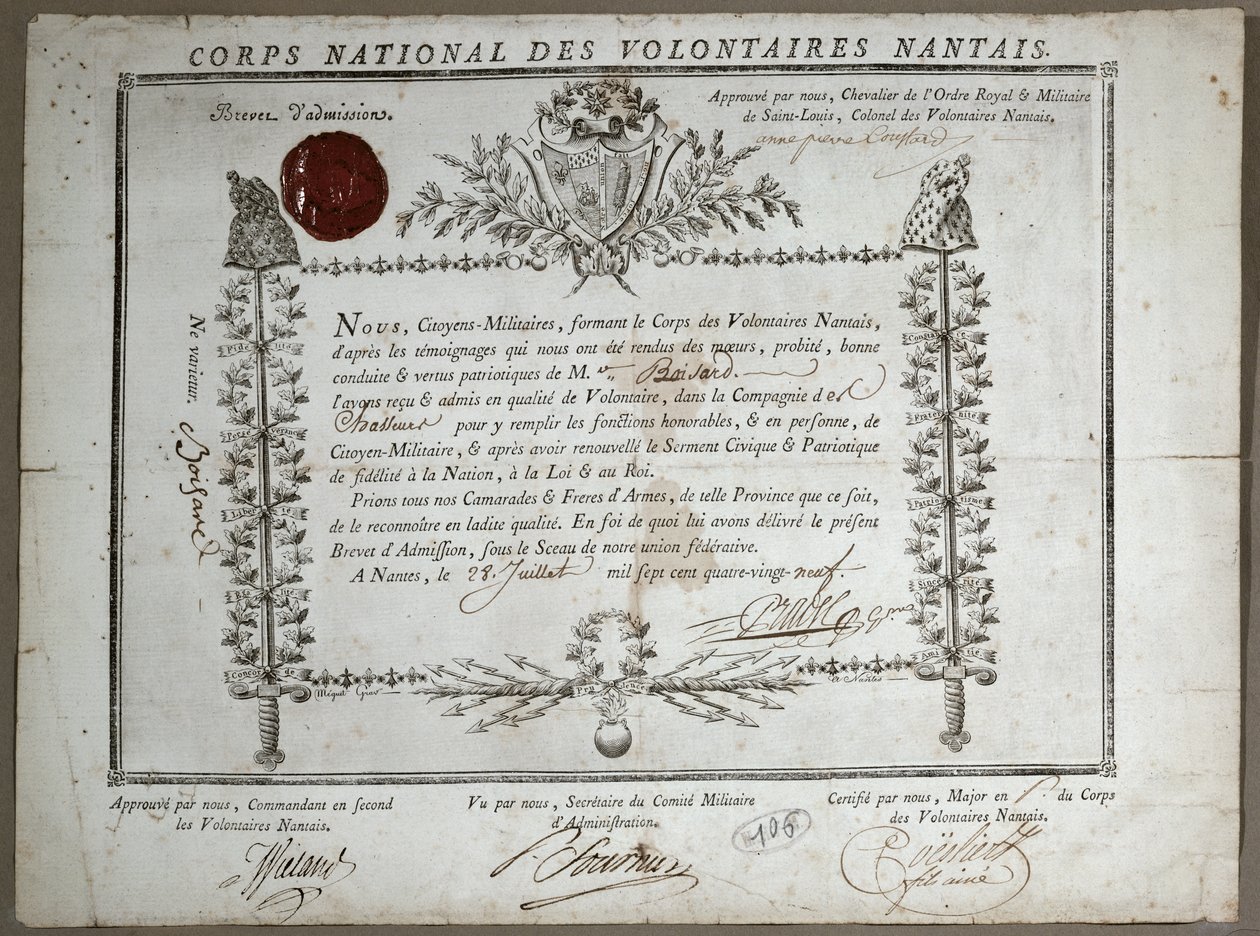 CORPS NATIONAL DES VOLONTAIRES NANTAIS.
Brevet d'admission.
Approuvé par nous, Chevalier de l'Ordre Royal & Militaire
de Saint-Louis, Colonel des Volontaires Nantais.
anne pierre Coustard
Nous, Citoyens-Militaires, formant le Corps des Volontaires Nantais,
d'après les témoignages qui nous ont été rendus des mœurs, probité, bonne
conduite & vertus patriotiques de M. Boisard.
l'avons reçu & admis en qualité de Volontaire, dans la Compagnie des
Chasseurs pour y remplir les fonctions honorables, & en personne, de
Citoyen-Militaire, & après avoir renouvellé le Serment Civique & Patriotique
de fidélité à la Nation, à la Loi & au Roi.
Prions tous nos Camarades & Freres d'Armes, de telle Province que ce ſoit,
de le reconnoître en ladite qualité. En foi de quoi lui avons délivré le préſent
Brevet d'Admiſſion, ſous le Sceau de notre union fédérative.
A Nantes, le 28. Juillet mil ſept cent quatre-vingt-neuf.
Ne varietur.
Boisard
Fidelité
Persévérance
Liberté
Concorde
Constance
Fraternité
Patriotisme
Sincérité
Amitié
Prudence
Méquet Grav
A Nantes
Approuvé par nous, Commandant en second
les Volontaires Nantais.
Wieland
Vu par nous, Secrétaire du Comité Militaire
d'Adminiſtration.
Fournier
106
Certifié par nous, Major en P. du Corps
des Volontaires Nantais.
fils ainé